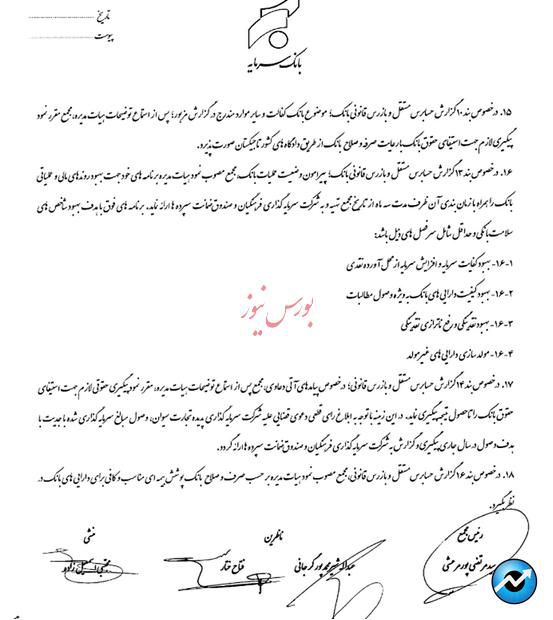 تاریخ
پیوست
بانک سرمایه
۱۵. در خصوص بند ۱۰ گزارش حسابرس مستقل و بازرس قانونی بانک؛ موضوع بانک کفالت و سایر موارد مندرج در گزارش مزبور؛ پس از استماع توضیحات هیات مدیره، مجمع مقرر نمود
پیگیری لازم جهت استیفای حقوق بانک با رعایت صرفه و صلاح بانک از طریق دادگاه های کشور تاجیکستان صورت پذیرد.
۱۶. در خصوص بند ۱۳ گزارش حسابرس مستقل و بازرس قانونی بانک؛ پیرامون وضعیت عملیات بانک، مجمع مصوب نمود هیات مدیره برنامه های خود جهت بهبود روندهای مالی و عملیاتی
بانک را همراه با زمان بندی آن ظرف مدت سه ماه از تاریخ مجمع تهیه و به شرکت سرمایه گذاری فرهنگیان و صندوق ضمانت سپرده ها ارائه نماید. برنامه های فوق با هدف بهبود شاخص های
سلامت بانکی و حداقل شامل سرفصل های ذیل باشد:
۱۶-۱- بهبود کفایت سرمایه و افزایش سرمایه از محل آورده نقدی
۱۶-۲- بهبود کیفیت دارایی های بانک به ویژه وصول مطالبات
۱۶-۳- بهبود نقدینگی و رفع ناترازی نقدینگی
۱۶-۴- مولدسازی دارایی های غیرمولد
بورس نیوز
۱۷. در خصوص بند ۱۴ گزارش حسابرس مستقل و بازرس قانونی؛ در خصوص پیامدهای آتی دعاوی، مجمع پس از استماع توضیحات هیات مدیره، مقرر نمود پیگیری حقوقی لازم جهت استیفای
حقوق بانک را تا حصول نتیجه پیگیری نماید. در این زمینه با توجه به ابلاغ رای قطعی دعوی قضایی علیه شرکت سرمایه گذاری پدیده تجارت سیوان، وصول مبالغ سرمایه گذاری شده با جدیت با
هدف وصول در سال جاری پیگیری و گزارش به شرکت سرمایه گذاری فرهنگیان و صندوق ضمانت سپرده ها ارائه گردد.
۱۸. در خصوص بند ۱۶ گزارش حسابرس مستقل و بازرس قانونی، مجمع مصوب نمود هیات مدیره بر حسب صرف و صلاح بانک پوشش بیمه ای مناسب و کافی برای دارایی های بانک در
نظر بگیرد.
رئیس مجمع
ناظرین
منشی
سید مرتضی پور مرعشی
عبدالبشیر محمدپور کرجانی
فتاح ختار
مجتبی اسمعیل زاده